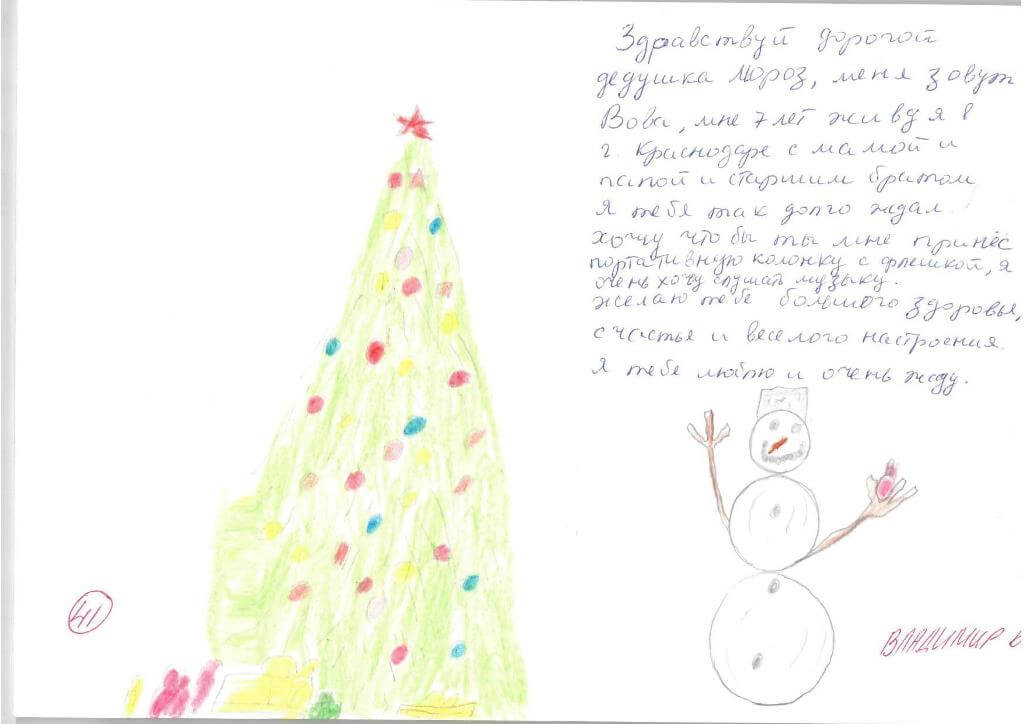 Здравствуй дорогой
дедушка Мороз, меня зовут
Вова, мне 7 лет живу я в
г. Краснодаре с мамой и
папой и старшим братом
Я тебя так долго ждал.
хочу что бы ты мне принёс
портативную колонку с флешкой, я
очень хочу слушать музыку.
желаю тебе большого здоровья,
счастье и веселого настроения.
Я тебе люблю и очень жду.
41
ВЛАДИМИР